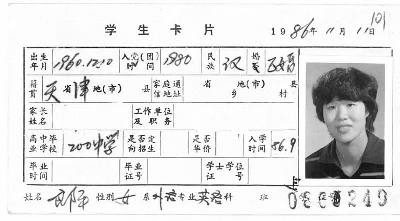 学生卡片 1986年11月11日
101
出生年月 1960.12.10 入党(团)时间 1980 民族 汉 婚否 已婚
籍贯 天津 省 地(市) 县 家庭通信地址 省 地(市) 县 乡 村
家长姓名 工作单位及职务
高中毕业学校 200中学 是否定向招生 是否华侨 入学时间 86.9
毕业时间 毕业证号 学士学位证号
姓名 性别 女 系 外语 专业 英语 科 班